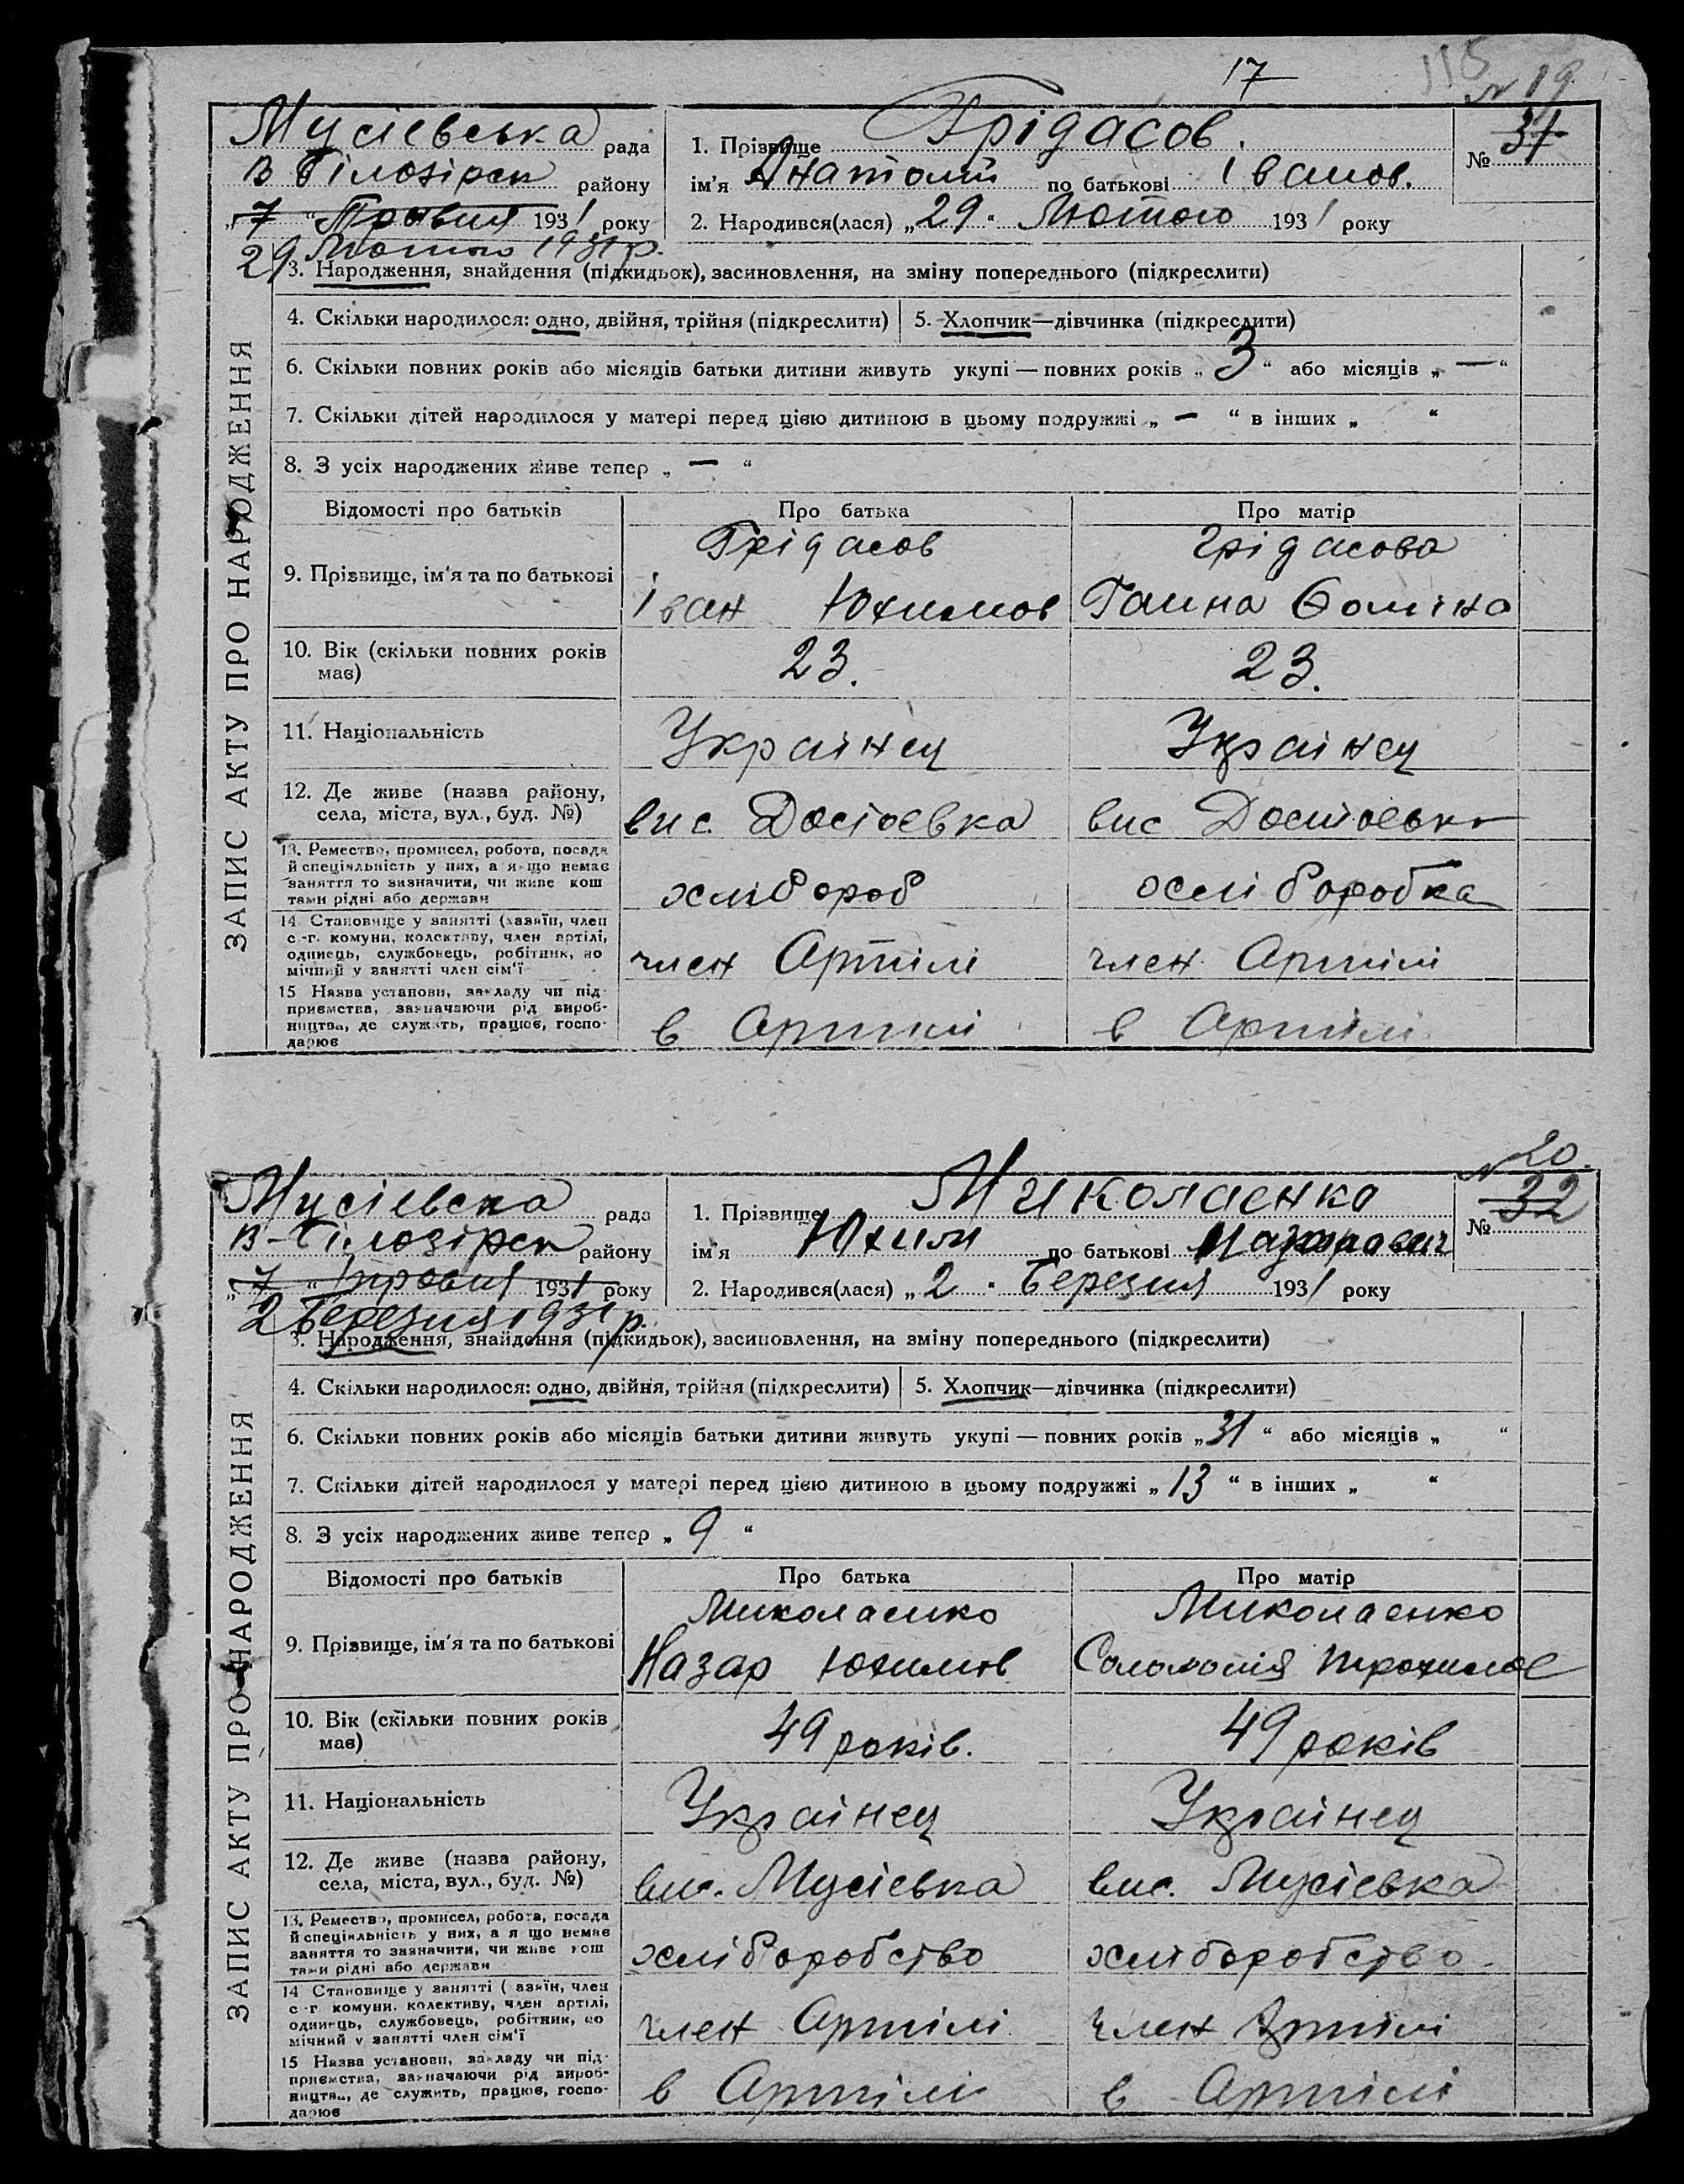 17
115
N 19
Мусієвська рада
1. Прізвище Грідасов.
№ 31
В Білозірск району
ім'я Анатолій по батькові Іванов.
„7“ Травня 1931 року
2. Народився(лася) „29“ Лютого 1931 року
29 Лютого 1931 р.
ЗАПИС АКТУ ПРО НАРОДЖЕННЯ
3. Народження, знайдення (підкидьок), засиновлення, на зміну попереднього (підкреслити)
4. Скільки народилося: одно, двійня, трійня (підкреслити) 5. Хлопчик—дівчинка (підкреслити)
6. Скільки повних років або місяців батьки дитини живуть укупі — повних років „3“ або місяців „—“
7. Скільки дітей народилося у матері перед цією дитиною в цьому подружжі „—“ в інших „ “
8. З усіх народжених живе тепер „—“
Відомості про батьків Про батька Про матір
9. Прізвище, ім'я та по батькові
Грідасов
Іван Юхимов
Грідасова
Ганна Фоміна
10. Вік (скільки повних років має) 23. 23.
11. Національність Украінец Украінец
12. Де живе (назва району, села, міста, вул., буд. №)
вис. Достоєвка
вис Достоєвка
13. Ремество, промисел, робота, посада
й спеціяльність у них, а якщо немає
заняття то зазначити, чи живе кош
тами рідні або держави
хлібороб
хліборобка
14 Становище у занятті (хазяїн, член
с.-г. комуни, колективу, член артілі,
одинець, службовець, робітник, по
мічний у занятті член сім'ї
член Артілі
член Артілі
15 Назва установи, закладу чи під-
приємства, зазначаючи рід вироб-
ництва, де служить, працює, госпо-
дарює
в Артілі
в Артілі
N 20.
Мусієвска рада
1. Прізвище Миколаенко
№ 32
В-Білозірск району
ім'я Юхим по батькові Назарович
„7“ травня 1931 року
2. Народився(лася) „2“ Березня 1931 року
2 Березня 1931 р.
ЗАПИС АКТУ ПРО НАРОДЖЕННЯ
3. Народження, знайдення (підкидьок), засиновлення, на зміну попереднього (підкреслити)
4. Скільки народилося: одно, двійня, трійня (підкреслити) 5. Хлопчик—дівчинка (підкреслити)
6. Скільки повних років або місяців батьки дитини живуть укупі — повних років „31“ або місяців „ “
7. Скільки дітей народилося у матері перед цією дитиною в цьому подружжі „13“ в інших „ “
8. З усіх народжених живе тепер „9“
Відомості про батьків Про батька Про матір
9. Прізвище, ім'я та по батькові
Миколаенко
Назар Юхимов
Миколаенко
Соломонія Трохимов
10. Вік (скільки повних років має) 49 років. 49 років
11. Національність Украінец Украінец
12. Де живе (назва району, села, міста, вул., буд. №)
вис. Мусієвка
вис. Мусієвка
13. Ремество, промисел, робота, посада
й спеціяльність у них, а якщо немає
заняття то зазначити, чи живе кош
тами рідні або держави
хліборобство
хліборобство.
14 Становище у занятті (хазяїн, член
с.-г. комуни, колективу, член артілі,
одинець, службовець, робітник, по
мічний у занятті член сім'ї
член Артілі
член Артілі
15 Назва установи, закладу чи під-
приємства, зазначаючи рід вироб-
ництва, де служить, працює, госпо-
дарює
в Артілі
в Артілі